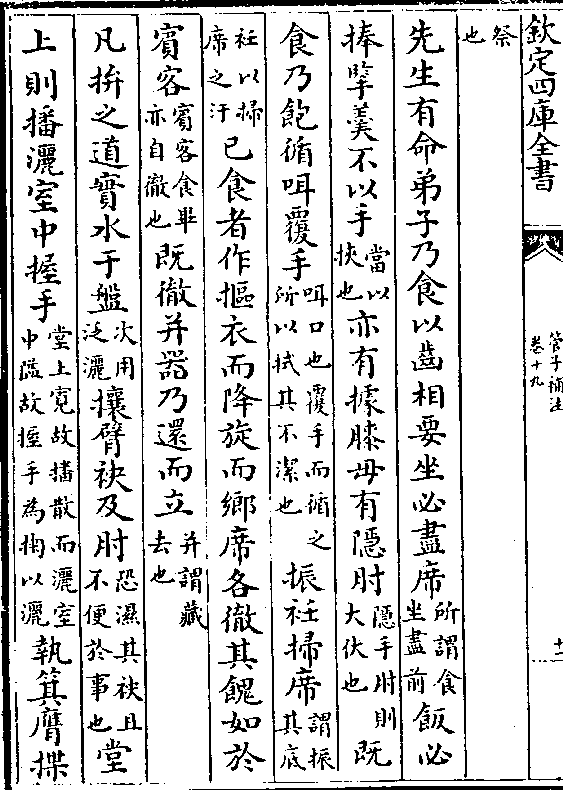 欽定四庫全書
管子補注
卷十九
十一
祭
也
先生有命弟子乃食以齒相要坐必盡席所謂食坐盡前飯必
捧擥羹不以手當以挾也亦有據膝毋有隱肘隱手肘則大伏也既
食乃飽循咡覆手咡口也覆手而循之所以拭其不潔也振衽掃席謂振其底
衽以掃席之汙已食者作摳衣而降旋而鄉席各徹其餽如於
賓客賓客食畢亦自徹也既徹并器乃還而立并謂藏去也
凡拚之道實水于盤次用泛灑攘臂袂及肘恐濕其袂且不便於事也堂
上則播灑室中握手堂上寛故播散而灑室中隘故握手為掬以灑執箕膺揲